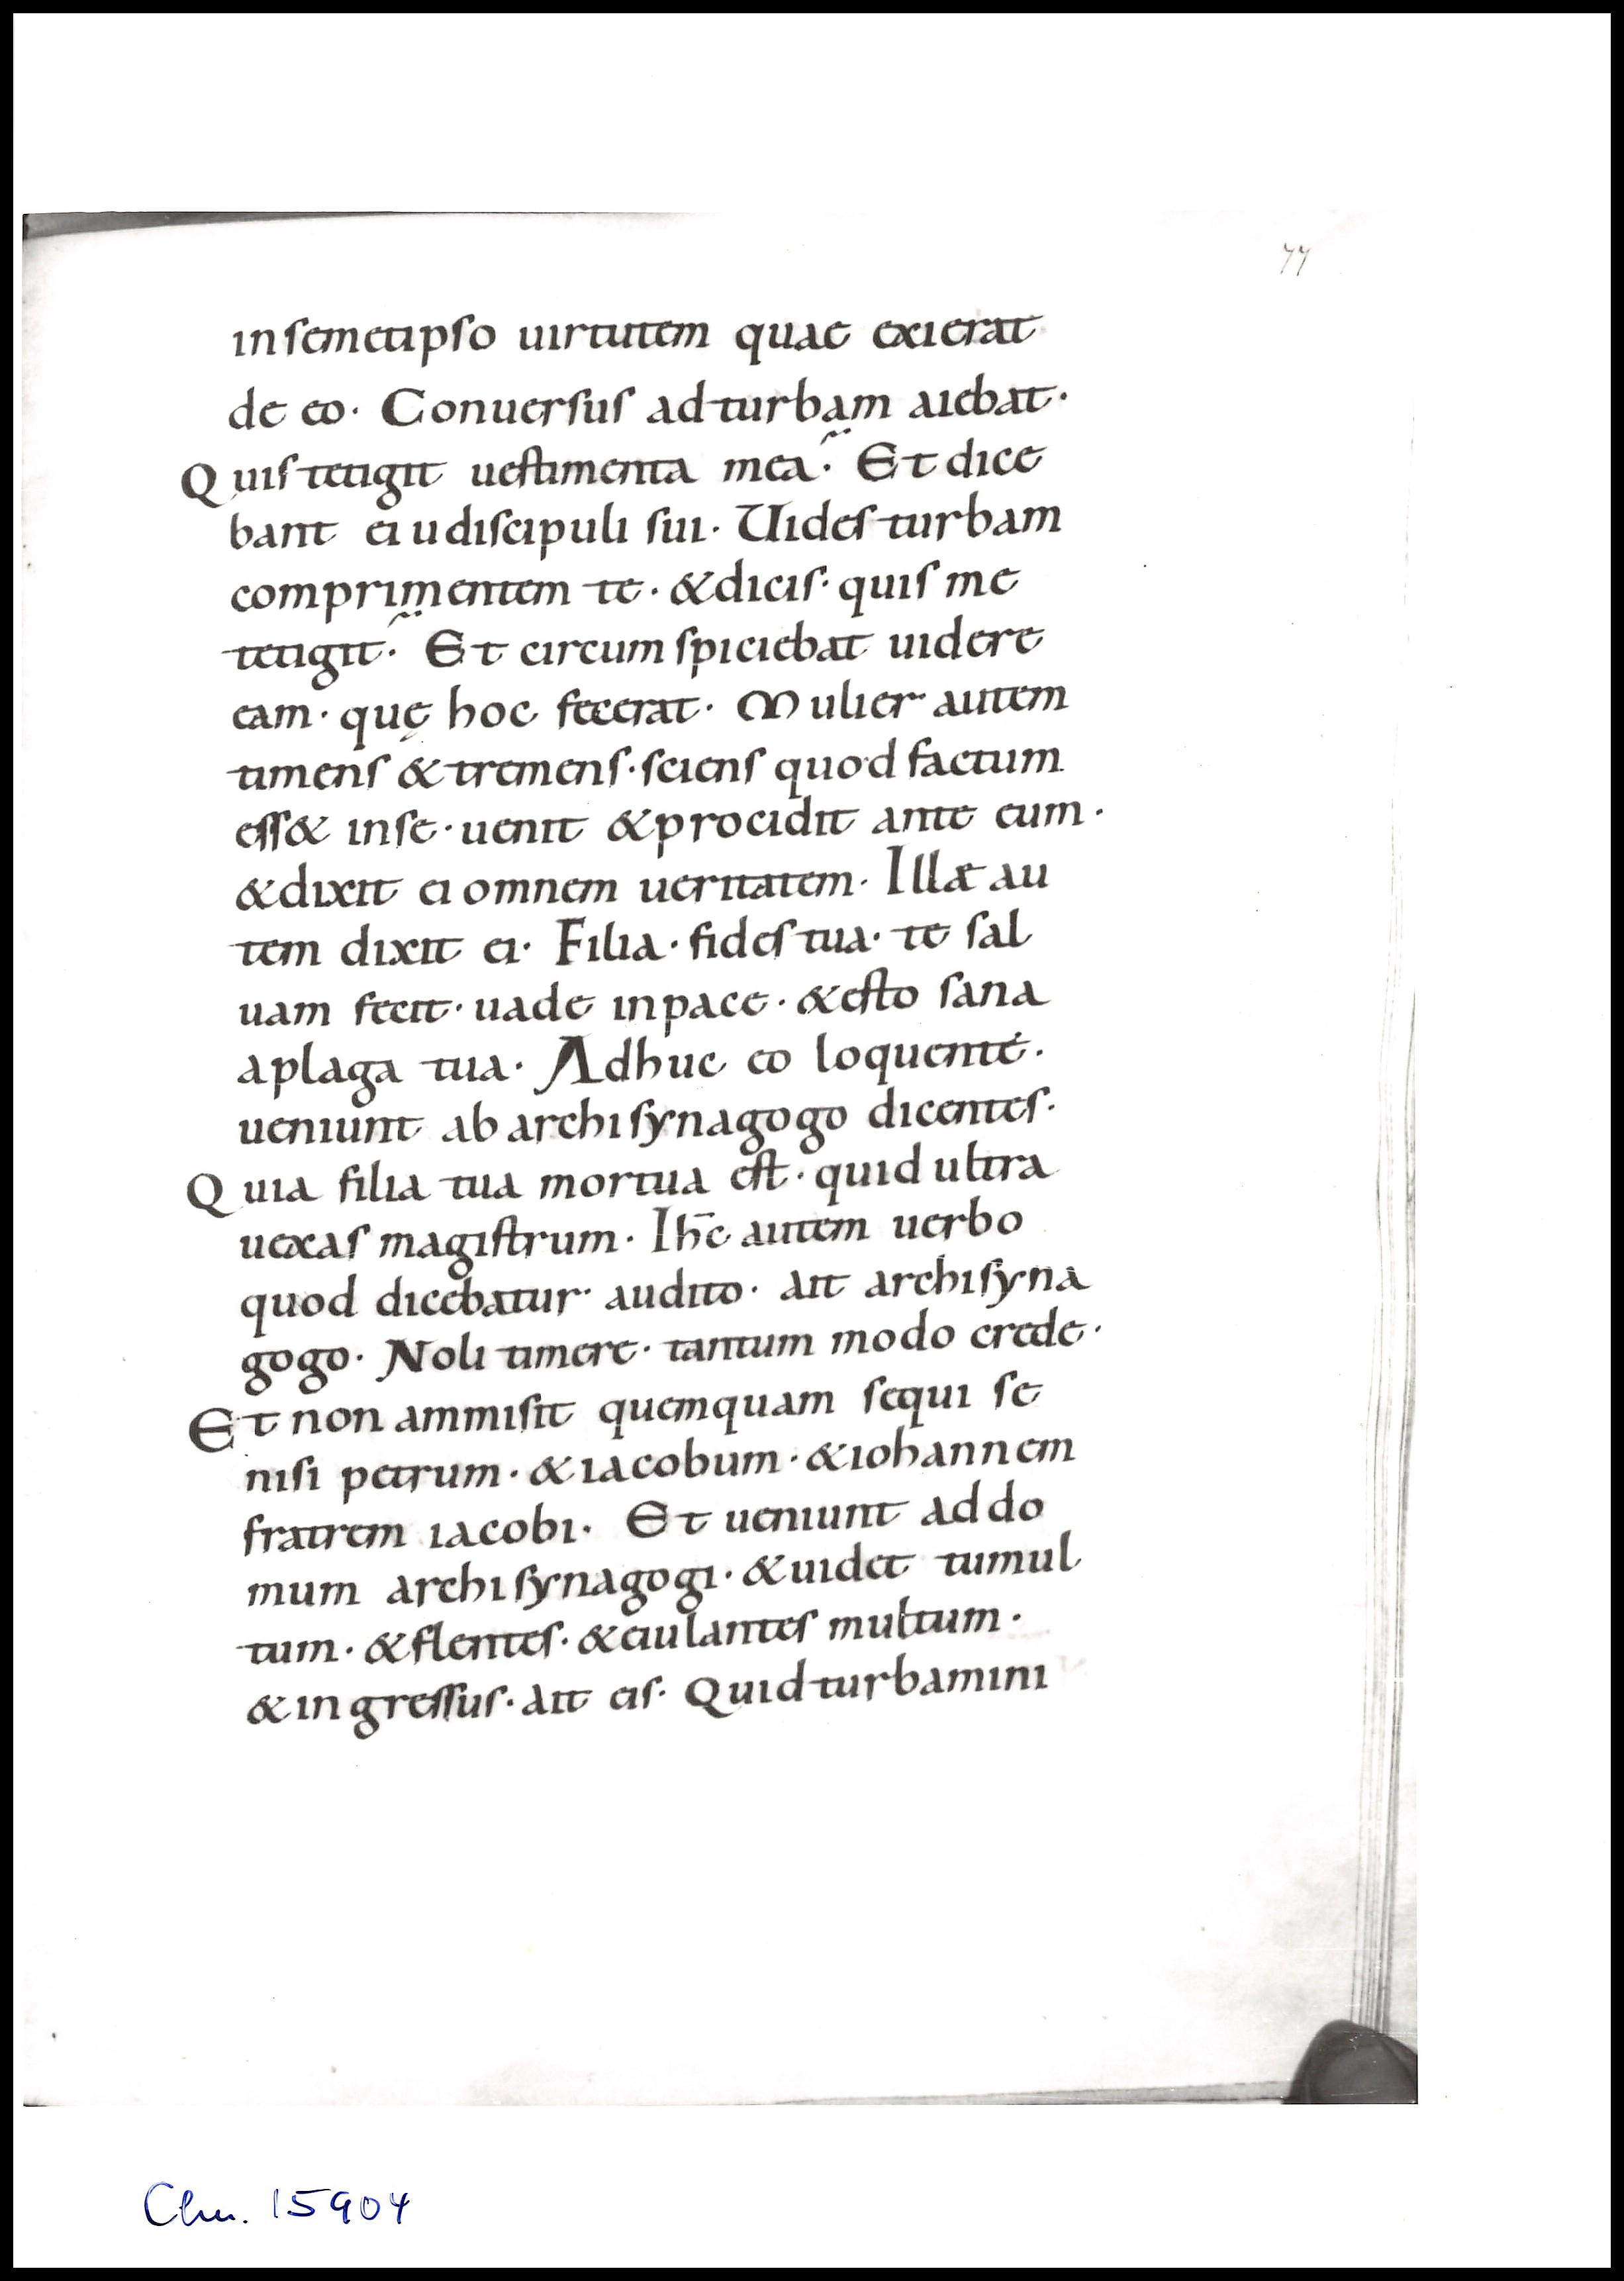 77
inſemetipſo uirtutem quae exierat
de eo· Conuerſuſ ad turbam aiebat·
Quiſ tetigit ueſtimenta mea·̃ Et dice
bant ei u diſcipuli ſui· Uideſ turbam
comprimentem te· &diciſ· quiſ me
tetigit·̃ Et circum ſpiciebat uidere
eam· quę hoc fecerat· Mulier autem
timenſ & tremenſ· ſcienſ quod factum
eſſ& inſe· uenit &procidit ante eum·
&dixit ei omnem ueritatem· Illæ au
tem dixit ei· Filia· fideſ tua· te ſal
uam fecit· uade inpace· &eſto ſana
aplaga tua· Adhuc eo loquente·
ueniunt ab archiſynagogo dicenteſ·
Quia filia tua mortua eſt· quid ultra
uexaſ magiſtrum· Ihc̅ autem uerbo
quod dicebatur· audito· ait archiſyna
gogo· Noli timere· tantum modo crede·
Et non ammiſit quemquam ſequi ſe
niſi petrum· & iacobum· &iohannem
fratrem iacobi· Et ueniunt ad do
mum archiſynagogi· &uidet tumul
tum· &flenteſ· &eiulanteſ multum·
&in greſſuſ· ait eiſ· Quid turbamini
Clm. 15904